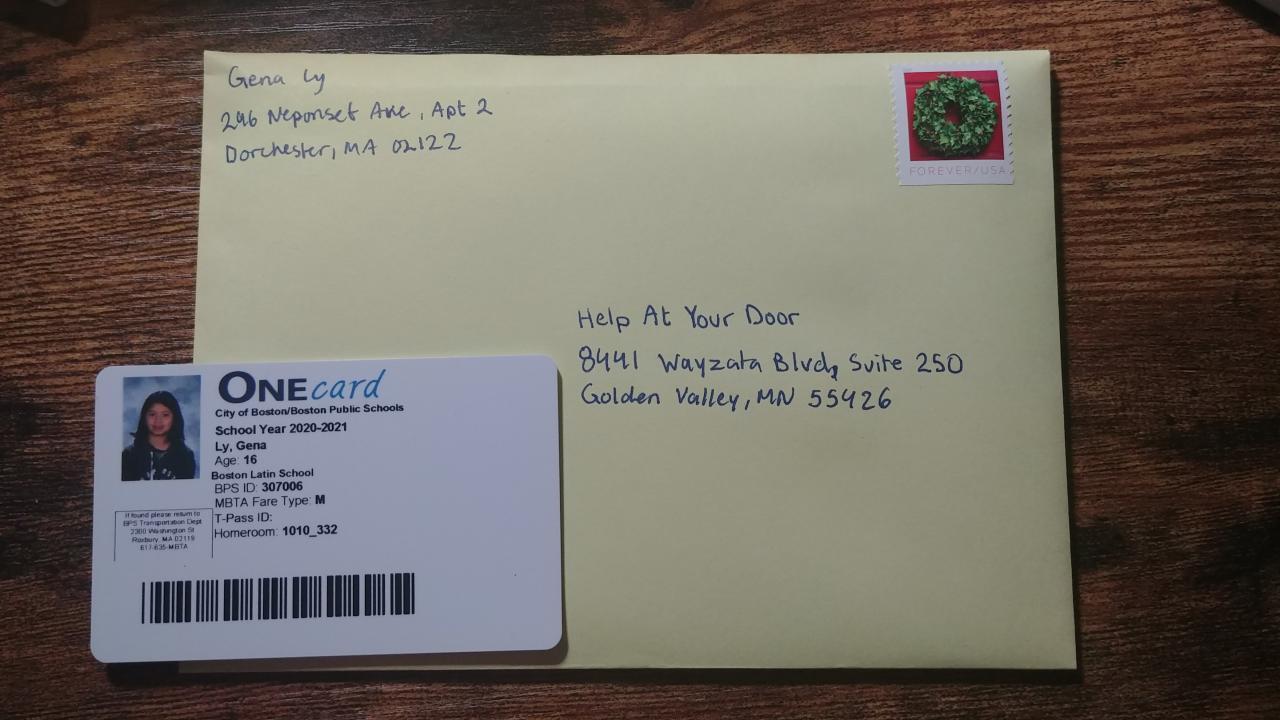 Gena Ly
296 Neponset Ave, Apt 2
Dorchester, MA 02122
FOREVER/USA
Help At Your Door
8441 Wayzata Blvd, Suite 250
Golden Valley, MN 55426
ONEcard
City of Boston/Boston Public Schools
School Year 2020-2021
Ly, Gena
Age: 16
Boston Latin School
BPS ID: 307006
MBTA Fare Type: M
T-Pass ID:
Homeroom: 1010_332
If found please return to
BPS Transportation Dept
2300 Washington St
Roxbury, MA 02119
617-635-MBTA